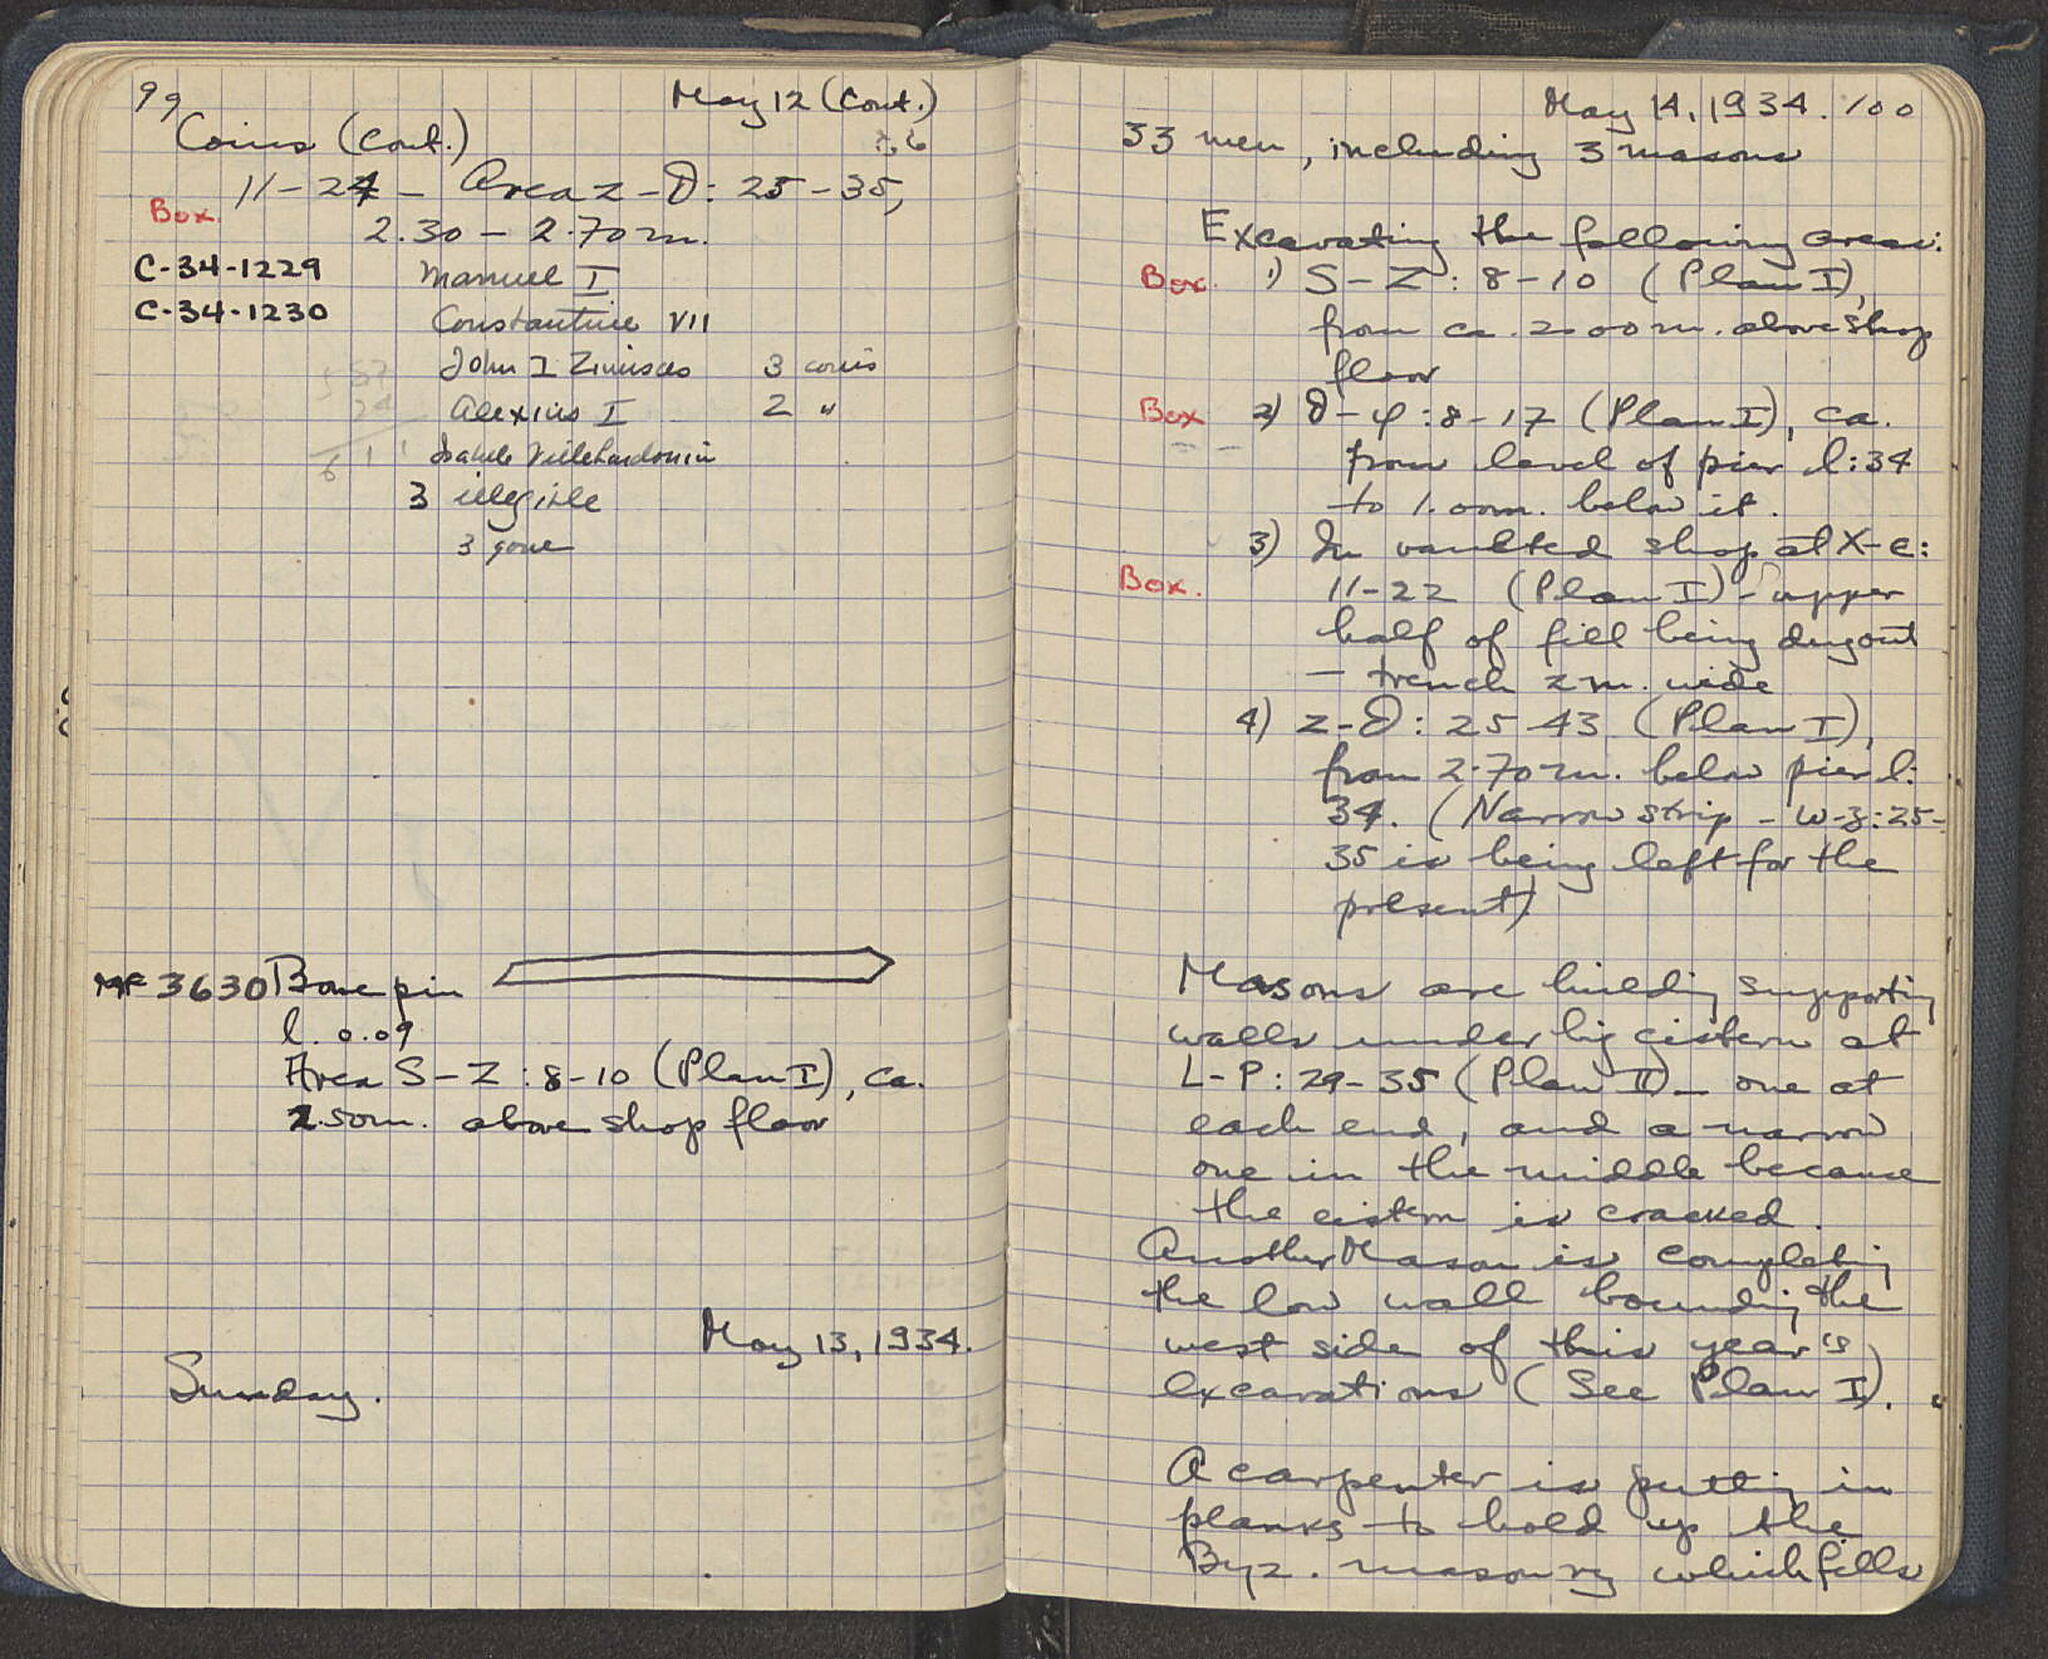 99
May 12 (Cont.)
Coins (Cont.)
11-24 - Area z-D: 25-35,
Box.
2.30 - 2.70 m.
C-34-1229 Manuel I
C-34-1230 Constantine VII
John I Zimisces 3 coins
Alexius I 2 "
Isabele Villehardouin
3 illegible
3 gone
MF 3630 Bone pin
l. 0.09
Area S-Z: 8-10 (Plan I), ca.
2.50m. above shop floor
May 13, 1934.
Sunday.
May 14, 1934. 100
33 men, including 3 masons
Excavating the following areas:
Box. 1) S-Z: 8-10 (Plan I),
from ca. 2.00 m. above shop
floor
Box 2) D-φ: 8-17 (Plan I), ca.
from level of pier l:34
to 1.00m. below it.
3) In vaulted shop at X-e:
Box. 11-22 (Plan I) - upper
half of fill being dug out
- trench 2 m. wide
4) z-D: 25-43 (Plan I),
from 2.70 m. below pier l:
34. (Narrow strip - w-z: 25-
35 is being left for the
present)
Masons are building supporting
walls under big cistern at
L-P: 29-35 (Plan II) - one at
each end, and a narrow
one in the middle because
the cistern is cracked.
Another Mason is completing
the low wall bounding the
west side of this year's
excavations (See Plan I).
A carpenter is putting in
planks to hold up the
Byz. masonry which fills